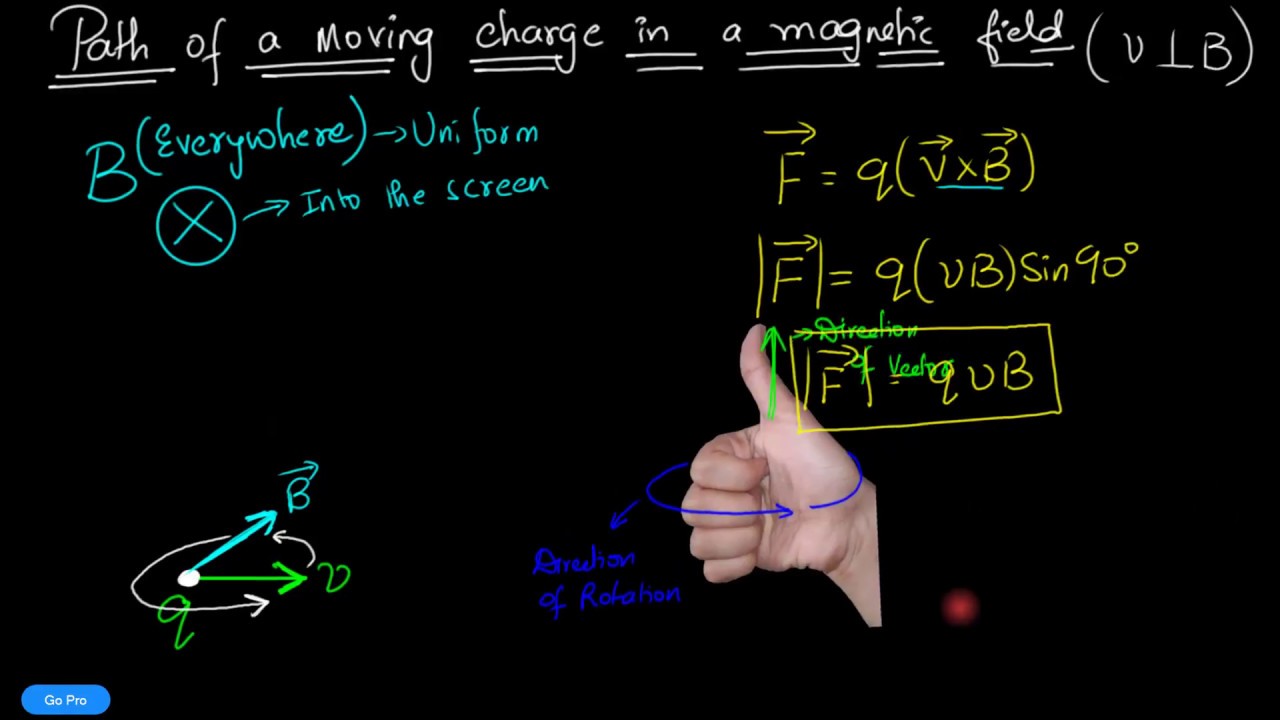 Path of a moving charge in a magnetic field (v⊥B)
B (Everywhere) → Uniform
→ Into the screen
F = q(v×B)
|F| = q(vB) Sin 90°
→ Direction
of Vector
|F| = qvB
B
v
q
Direction
of Rotation
Go Pro